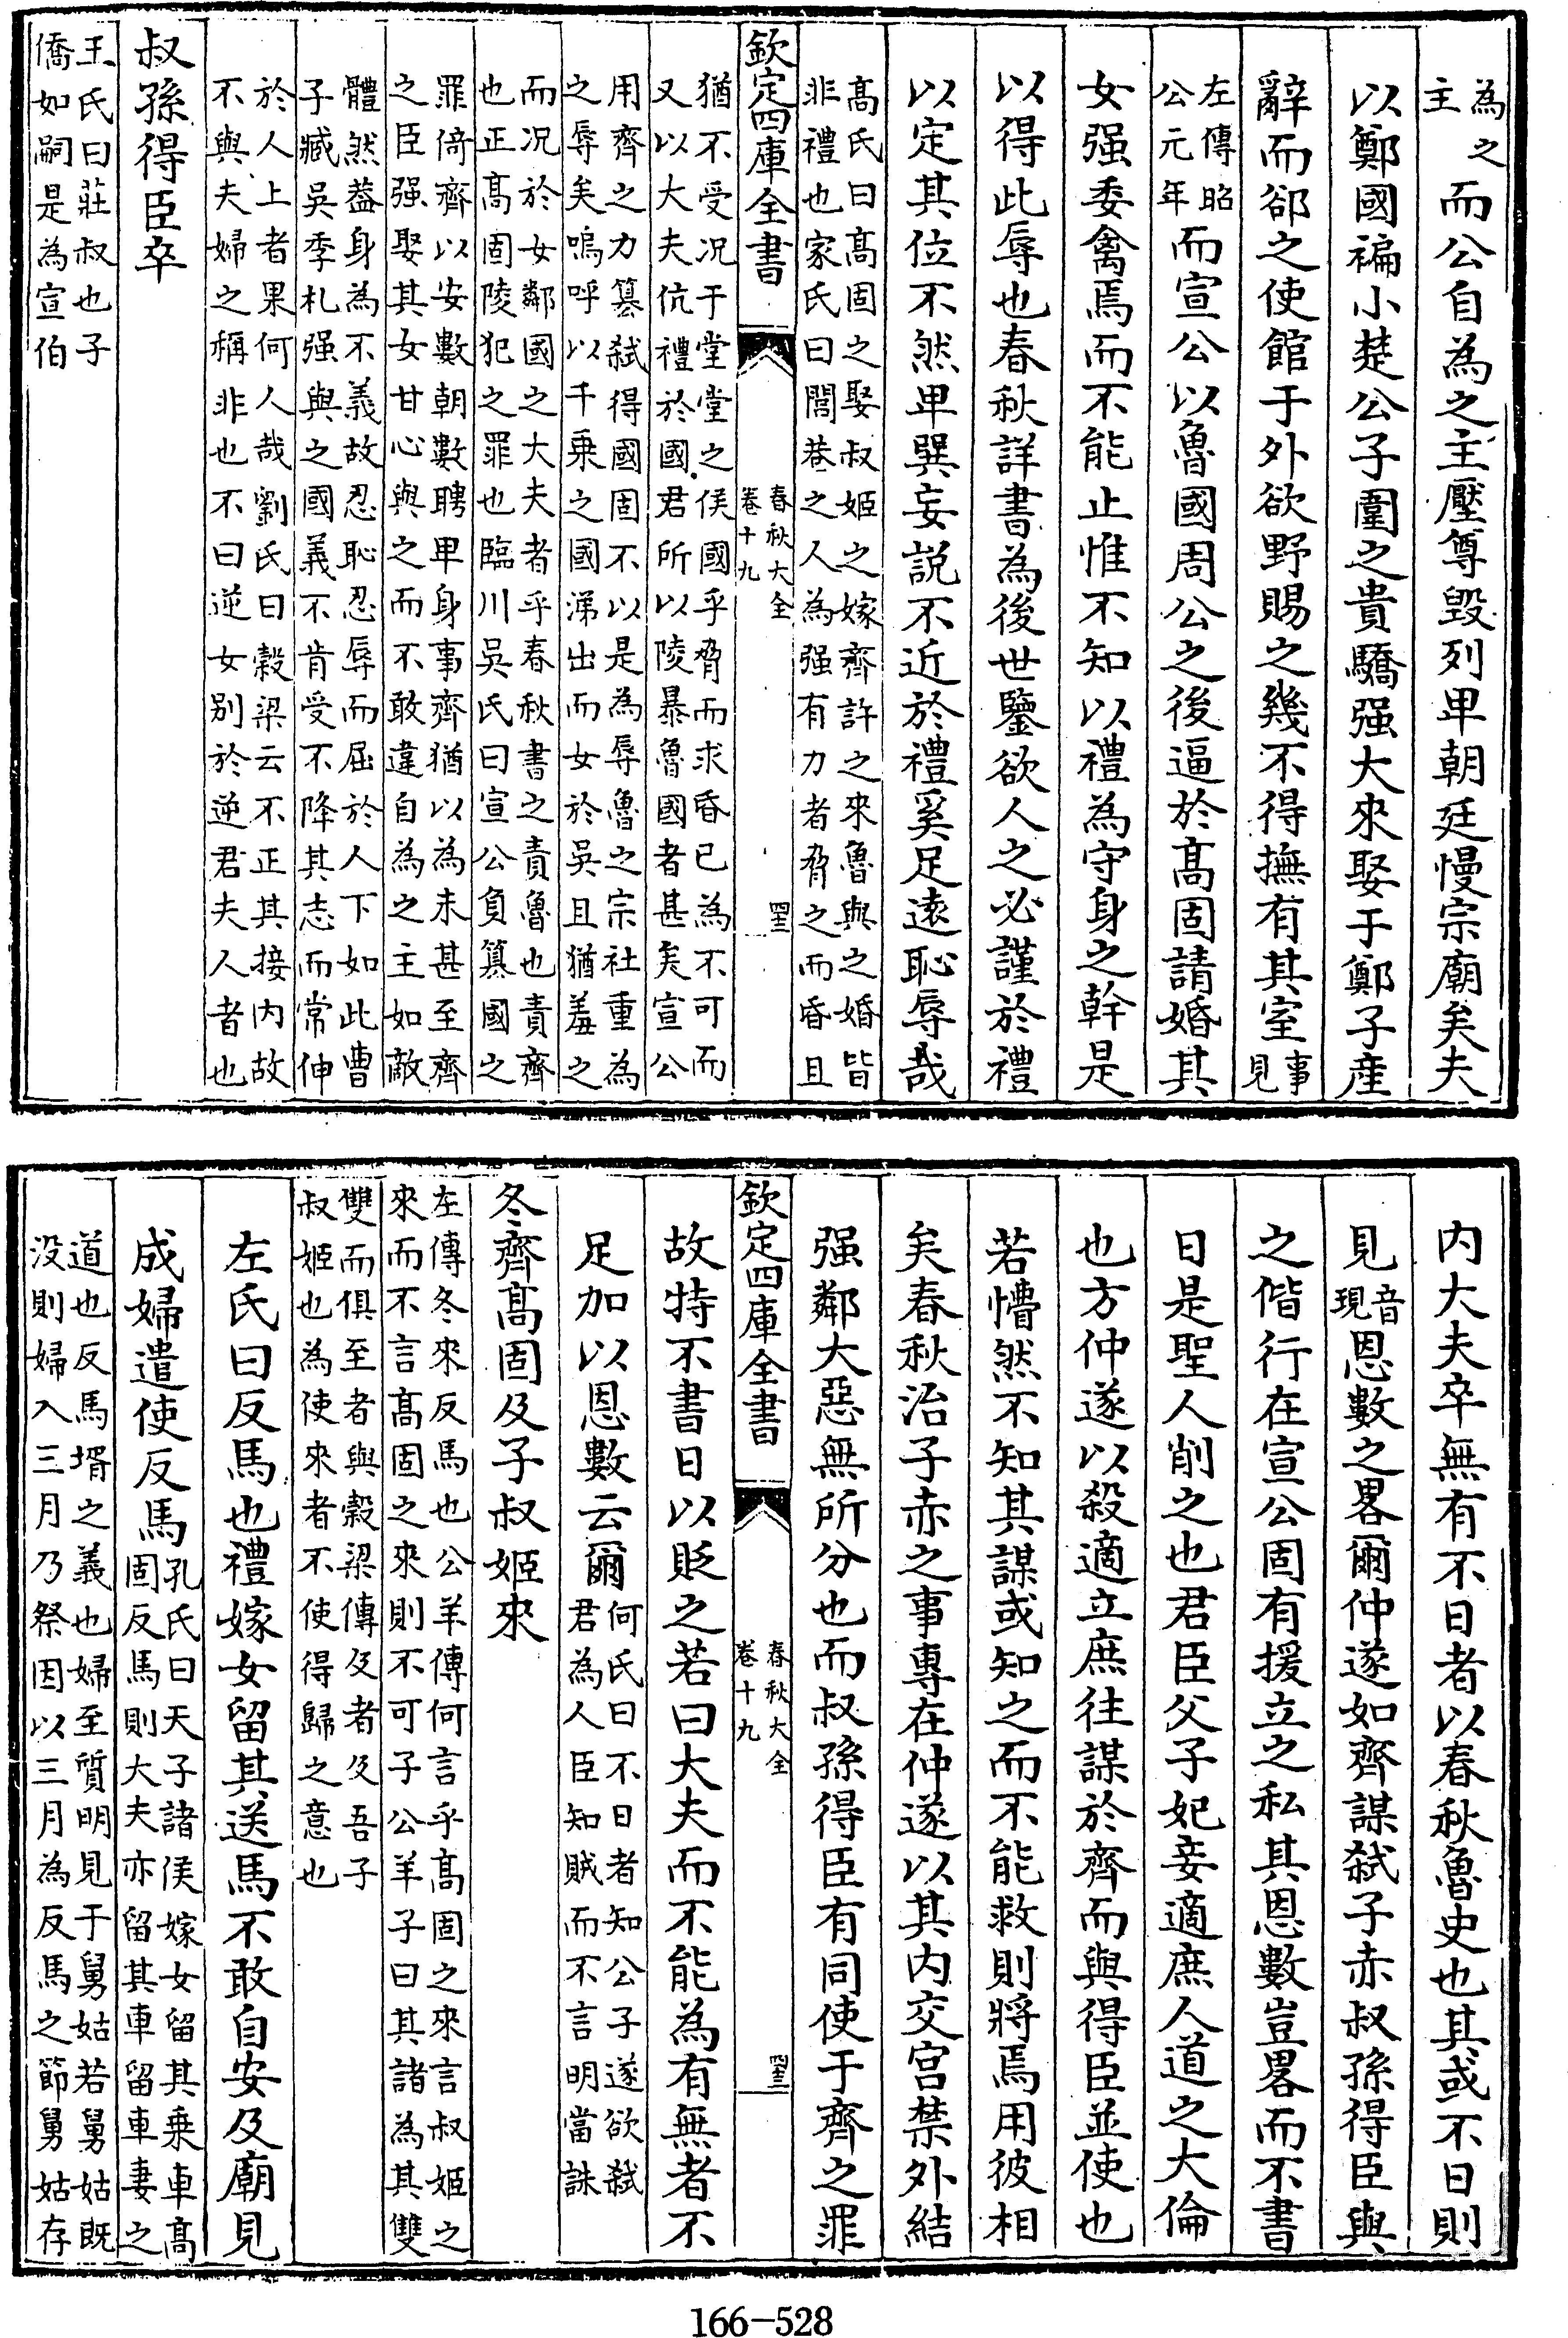 為之
主
而公自為之主壓尊毀列卑朝廷慢宗廟矣夫
以鄭國褊小楚公子圍之貴驕强大來娶于鄭子産
辭而郤之使館于外欲野賜之幾不得撫有其室
事
見
左傳昭
公元年
而宣公以魯國周公之後逼於髙固請婚其
女强委禽焉而不能止惟不知以禮為守身之幹是
以得此辱也春秋詳書為後世鑒欲人之必謹於禮
以定其位不然卑巽妄説不近於禮奚足遠恥辱哉
髙氏曰髙固之娶叔姬之嫁齊許之來魯與之婚皆
非禮也家氏曰閭巷之人為强有力者脅之而昏且
欽定四庫全書
春秋大全
卷十九
猶不受况于堂堂之侯國乎脅而求昏已為不可而
又以大夫伉禮於國君所以陵暴魯國者甚矣宣公
用齊之力簒弑得國固不以是為辱魯之宗社重為
之辱矣嗚呼以千乗之國涕出而女於吳且猶羞之
而况於女鄰國之大夫者乎春秋書之責魯也責齊
也正髙固陵犯之罪也臨川吳氏曰宣公負簒國之
罪倚齊以安數朝數聘卑身事齊猶以為未甚至齊
之臣强娶其女甘心與之而不敢違自為之主如敵
體然葢身為不義故忍恥忍辱而屈於人下如此曹
子臧吳季札强與之國義不肯受不降其志而常伸
於人上者果何人哉劉氏曰穀梁云不正其接内故
不與夫婦之稱非也不曰逆女别於逆君夫人者也
叔孫得臣卒
王氏曰莊叔也子
僑如嗣是為宣伯
内大夫卒無有不日者以春秋魯史也其或不日則
見
音
現
恩數之畧爾仲遂如齊謀弑子赤叔孫得臣與
之偕行在宣公固有援立之私其恩數豈畧而不書
日是聖人削之也君臣父子妃妾適庶人道之大倫
也方仲遂以殺適立庶往謀於齊而與得臣並使也
若懵然不知其謀或知之而不能救則將焉用彼相
矣春秋治子赤之事專在仲遂以其内交宫禁外結
强鄰大惡無所分也而叔孫得臣有同使于齊之罪
欽定四庫全書
春秋大全
卷十九
故特不書日以貶之若曰大夫而不能為有無者不
足加以恩數云爾
何氏曰不日者知公子遂欲弑
君為人臣知賊而不言明當誅
冬齊髙固及子叔姬來
左傳冬來反馬也公羊傳何言乎髙固之來言叔姬之
來而不言髙固之來則不可子公羊子曰其諸為其雙
雙而俱至者與穀梁傳及者及吾子
叔姬也為使來者不使得歸之意也
左氏曰反馬也禮嫁女留其送馬不敢自安及廟見
成婦遣使反馬
孔氏曰天子諸侯嫁女留其乗車髙
固反馬則大夫亦留其車留車妻之
道也反馬壻之義也婦至質明見于舅姑若舅姑既
没則婦入三月乃祭因以三月為反馬之節舅姑存
166-528